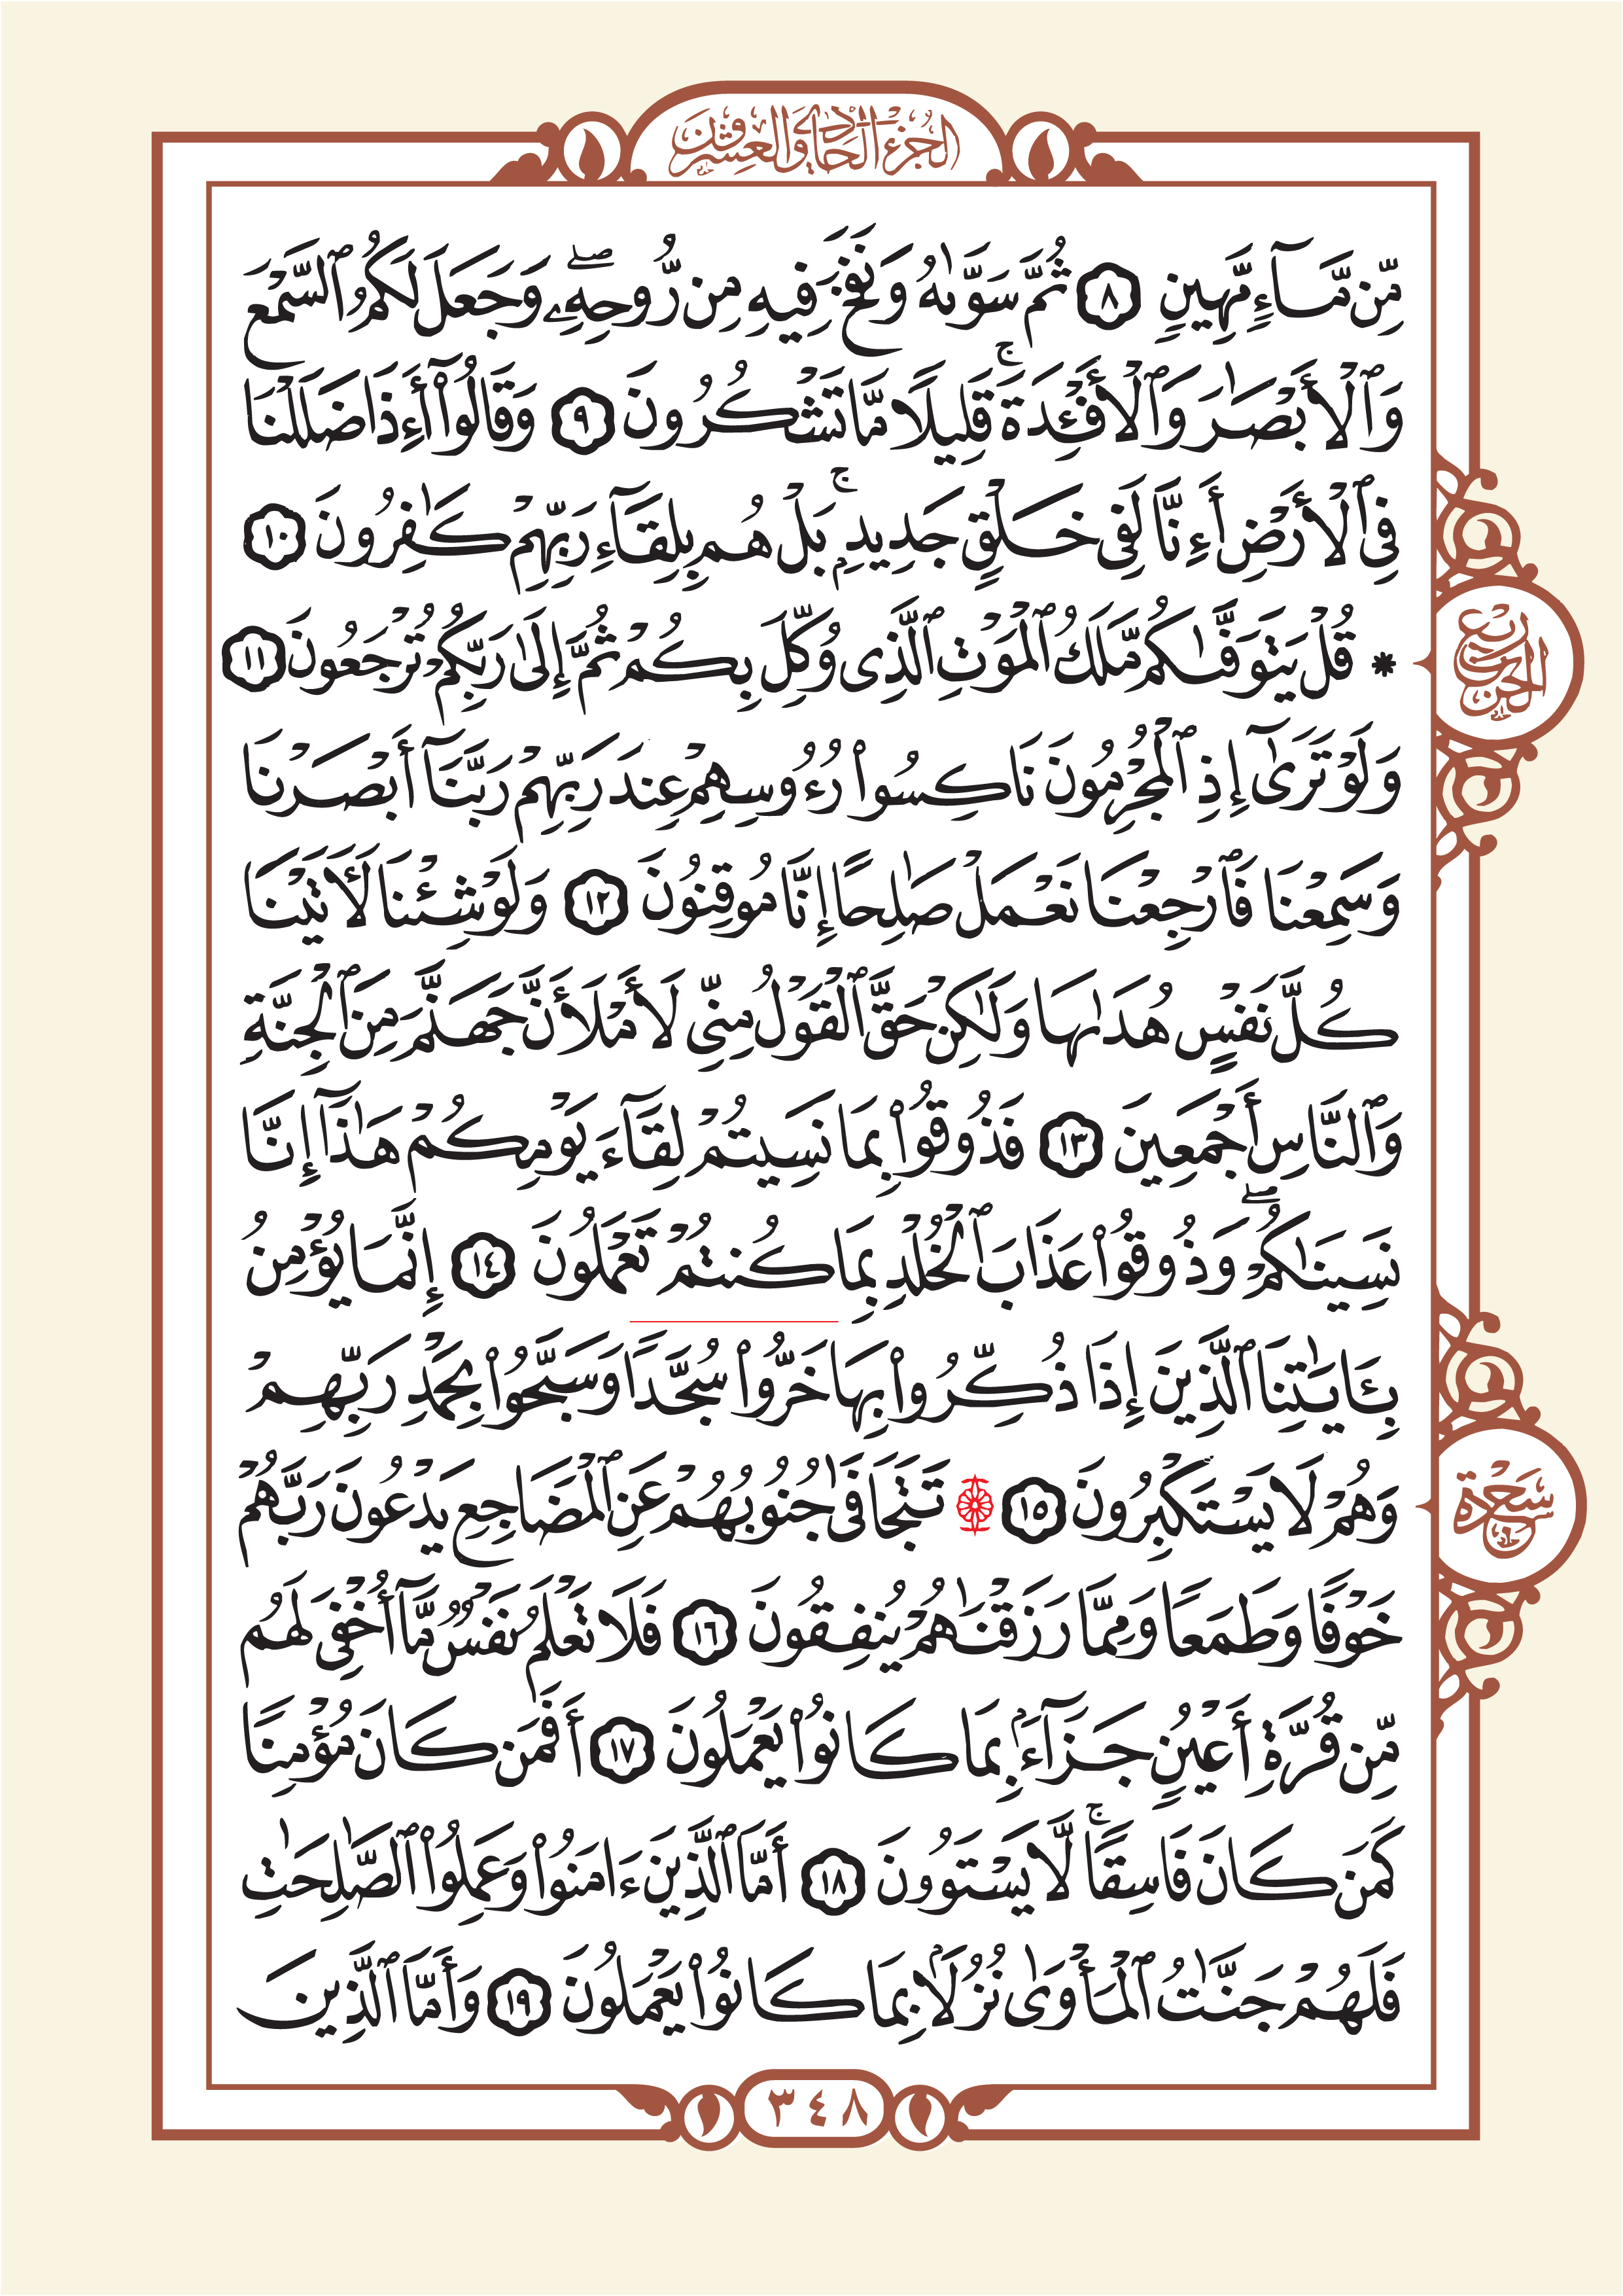 الجزء الحادي والعشرون
مِّن مَّآءٍ مَّهِينٍ ٨ ثُمَّ سَوَّىٰهُ وَنَفَخَ فِيهِ مِن رُّوحِهِۦۖ وَجَعَلَ لَكُمُ ٱلسَّمْعَ
وَٱلْأَبْصَٰرَ وَٱلْأَفْـِٔدَةَۚ قَلِيلًا مَّا تَشْكُرُونَ ٩ وَقَالُوٓا۟ أَءِذَا ضَلَلْنَا
فِى ٱلْأَرْضِ أَءِنَّا لَفِى خَلْقٍ جَدِيدٍۭۚ بَلْ هُم بِلِقَآءِ رَبِّهِمْ كَٰفِرُونَ ١٠
* قُلْ يَتَوَفَّىٰكُم مَّلَكُ ٱلْمَوْتِ ٱلَّذِى وُكِّلَ بِكُمْ ثُمَّ إِلَىٰ رَبِّكُمْ تُرْجَعُونَ ١١
ربع الحزب
وَلَوْ تَرَىٰٓ إِذِ ٱلْمُجْرِمُونَ نَاكِسُوا۟ رُءُوسِهِمْ عِندَ رَبِّهِمْ رَبَّنَآ أَبْصَرْنَا
وَسَمِعْنَا فَٱرْجِعْنَا نَعْمَلْ صَٰلِحًا إِنَّا مُوقِنُونَ ١٢ وَلَوْ شِئْنَا لَـَٔاتَيْنَا
كُلَّ نَفْسٍ هُدَىٰهَا وَلَٰكِنْ حَقَّ ٱلْقَوْلُ مِنِّى لَأَمْلَأَنَّ جَهَنَّمَ مِنَ ٱلْجِنَّةِ
وَٱلنَّاسِ أَجْمَعِينَ ١٣ فَذُوقُوا۟ بِمَا نَسِيتُمْ لِقَآءَ يَوْمِكُمْ هَٰذَآ إِنَّا
نَسِينَٰكُمْۖ وَذُوقُوا۟ عَذَابَ ٱلْخُلْدِ بِمَا كُنتُمْ تَعْمَلُونَ ١٤ إِنَّمَا يُؤْمِنُ
بِـَٔايَٰتِنَا ٱلَّذِينَ إِذَا ذُكِّرُوا۟ بِهَا خَرُّوا۟ سُجَّدًا وَسَبَّحُوا۟ بِحَمْدِ رَبِّهِمْ
وَهُمْ لَا يَسْتَكْبِرُونَ ١٥ ۩ تَتَجَافَىٰ جُنُوبُهُمْ عَنِ ٱلْمَضَاجِعِ يَدْعُونَ رَبَّهُمْ
سجدة
خَوْفًا وَطَمَعًا وَمِمَّا رَزَقْنَٰهُمْ يُنفِقُونَ ١٦ فَلَا تَعْلَمُ نَفْسٌ مَّآ أُخْفِىَ لَهُم
مِّن قُرَّةِ أَعْيُنٍ جَزَآءًۢ بِمَا كَانُوا۟ يَعْمَلُونَ ١٧ أَفَمَن كَانَ مُؤْمِنًا
كَمَن كَانَ فَاسِقًاۚ لَّا يَسْتَوُۥنَ ١٨ أَمَّا ٱلَّذِينَ ءَامَنُوا۟ وَعَمِلُوا۟ ٱلصَّٰلِحَٰتِ
فَلَهُمْ جَنَّٰتُ ٱلْمَأْوَىٰ نُزُلًۢا بِمَا كَانُوا۟ يَعْمَلُونَ ١٩ وَأَمَّا ٱلَّذِينَ
٣٤٨